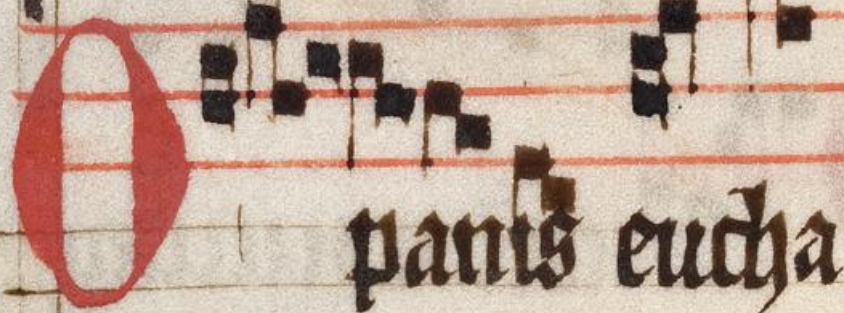 O panis eucha